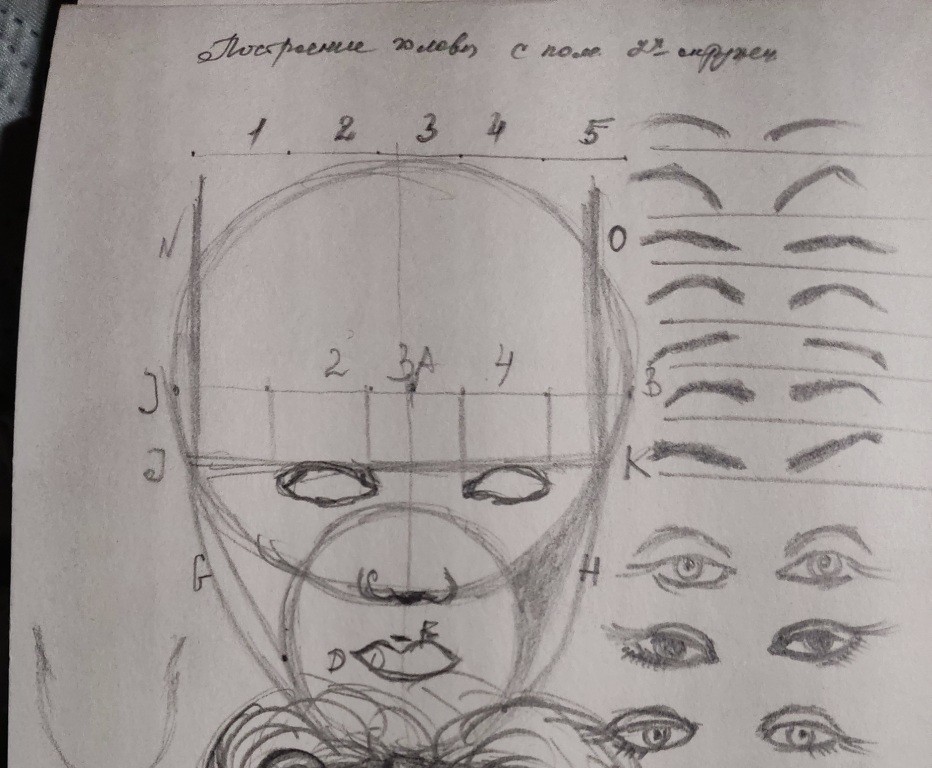 Построение головы с пом. 2х окружен
1 2 3 4 5
N O
2 3A 4
J B
J K
G H
R
D